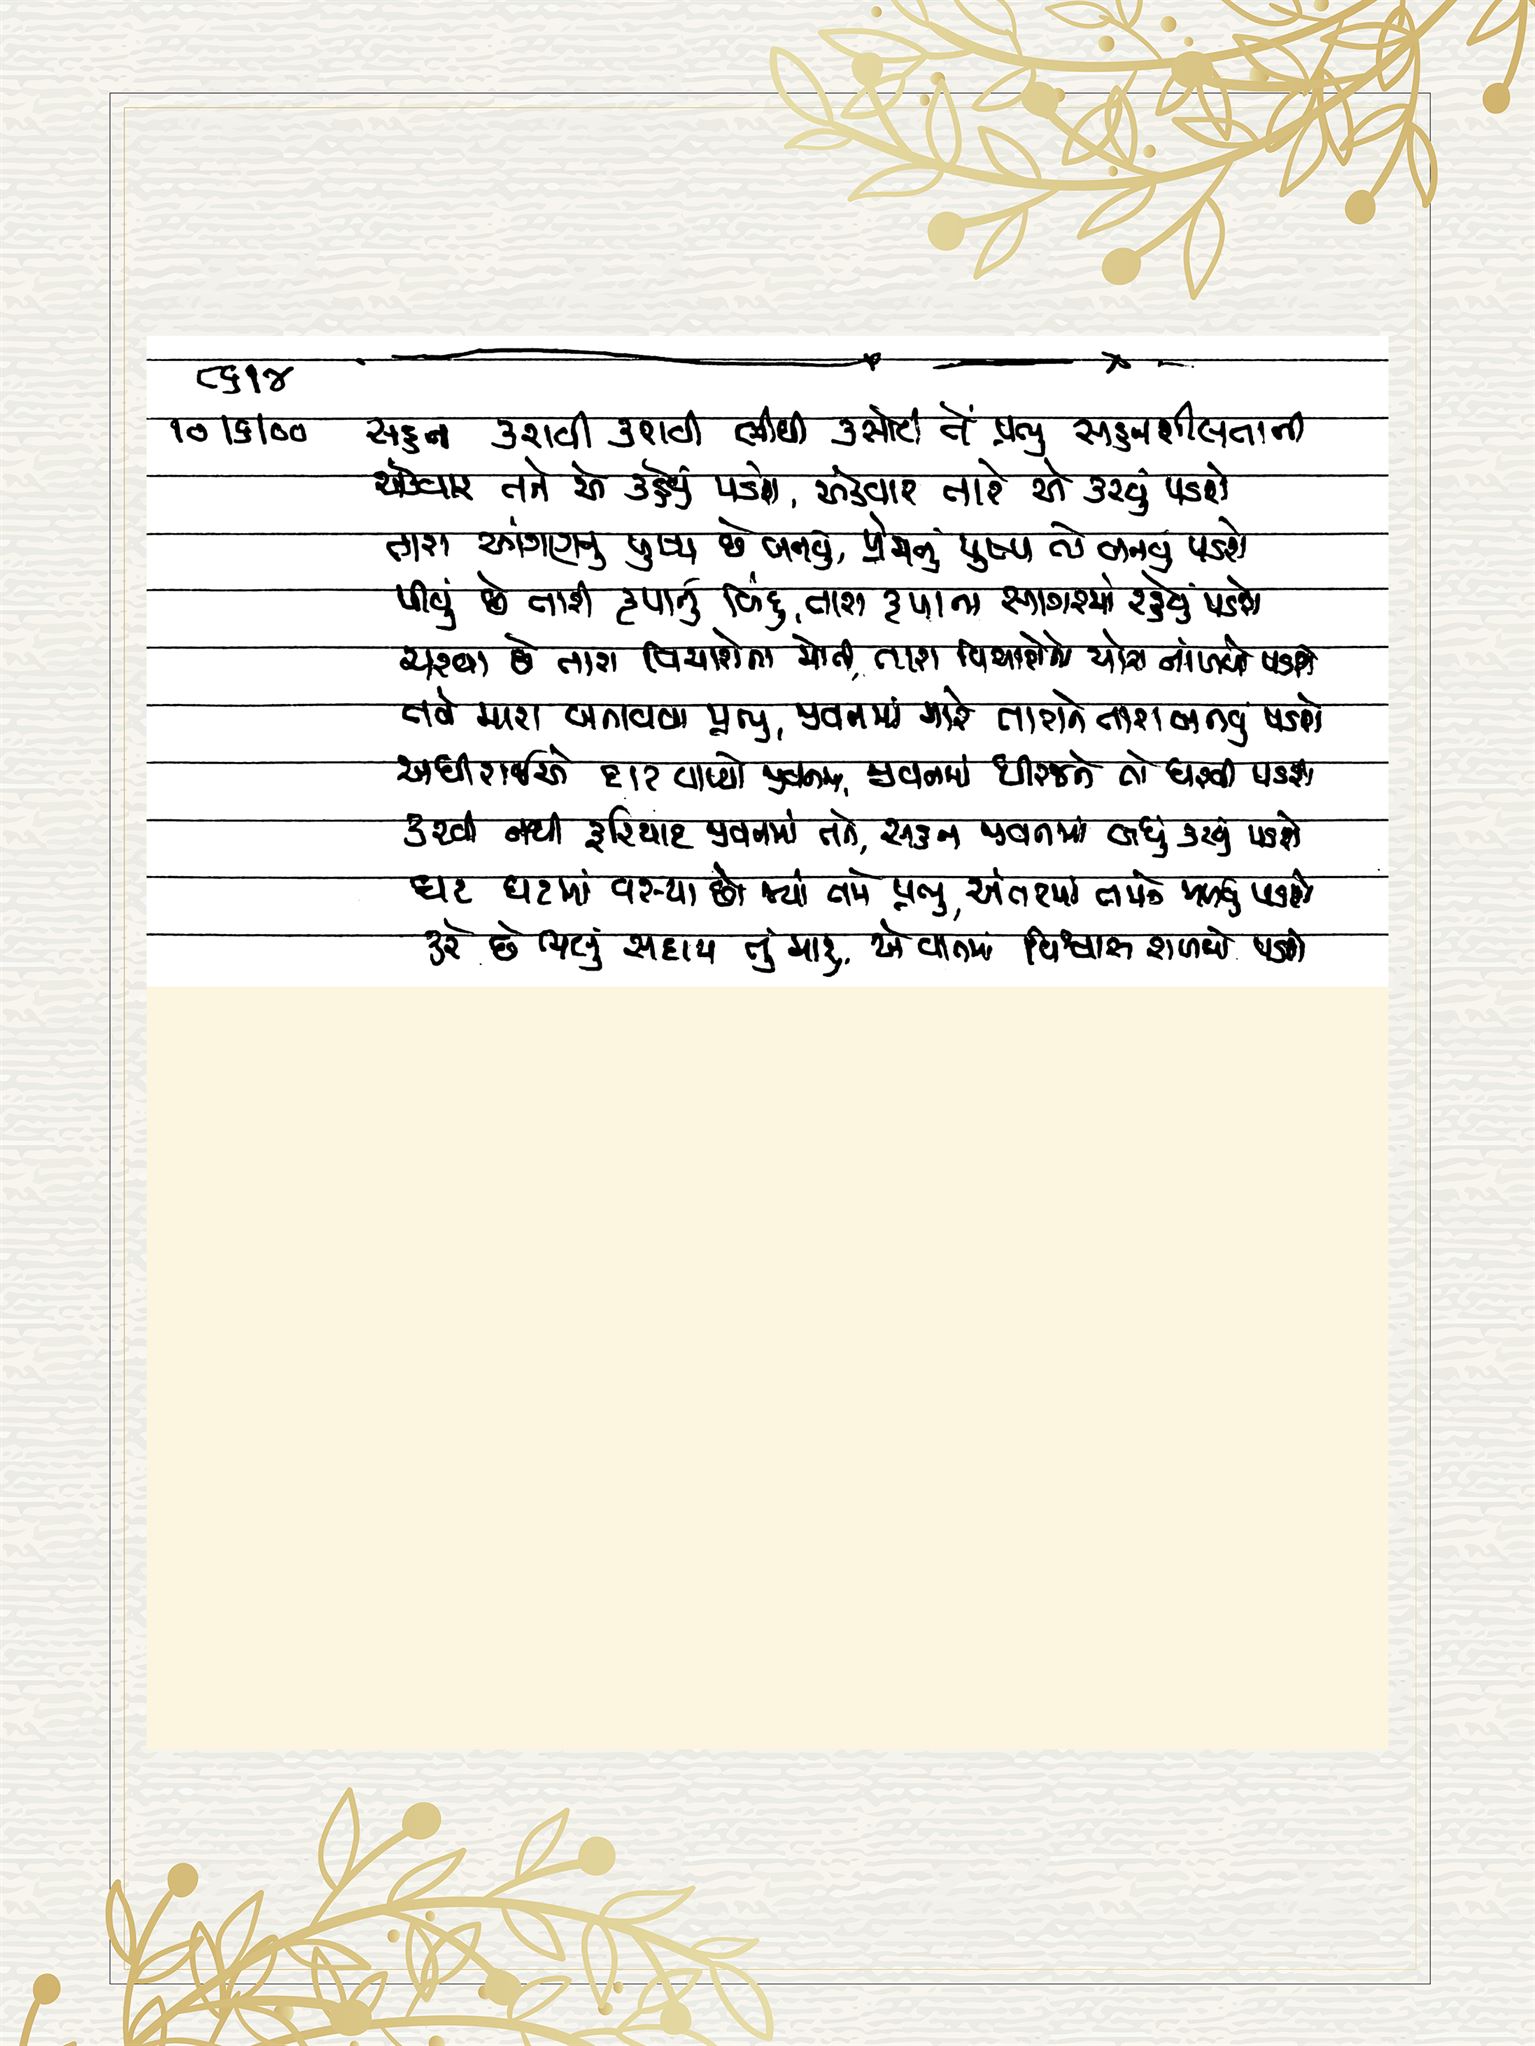 ૮૬૧૪
૧૦/૬/૦૦ સહન કરાવી કરાવી લીધી કસોટી તેં પ્રભુ સહનશીલતાની
એકવાર તને એ કહેવું પડશે, એકવાર તારે એ કરવું પડશે
તારા આંગણનું પુષ્પ છે બનવું, પ્રેમનું પુષ્પ તો બનવું પડશે
પીવું છે તારી કૃપાનું બિંદુ, તારા કૃપાના સાગરમાં રહેવું પડશે
ચરવા છે તારા વિચારોના મોતી, તારા વિચારોનો ચારો નાંખવો પડશે
તને મારા બનાવવા પ્રભુ, જીવનમાં મારે તારાને તારા બનવું પડશે
અધીરાઈએ દાટ વાળ્યો જીવનમાં, જીવનમાં ધીરજને તો ધરવી પડશે
કરવી નથી ફરિયાદ જીવનમાં તને, સહન જીવનમાં બધું કરવું પડશે
ઘટ ઘટમાં વસ્યા છો જ્યાં તમે પ્રભુ, અંતરમાં તમને મળવું પડશે
કરે છે ભલું સદાય તું મારું, એ વાતમાં વિશ્વાસ રાખવો પડશે